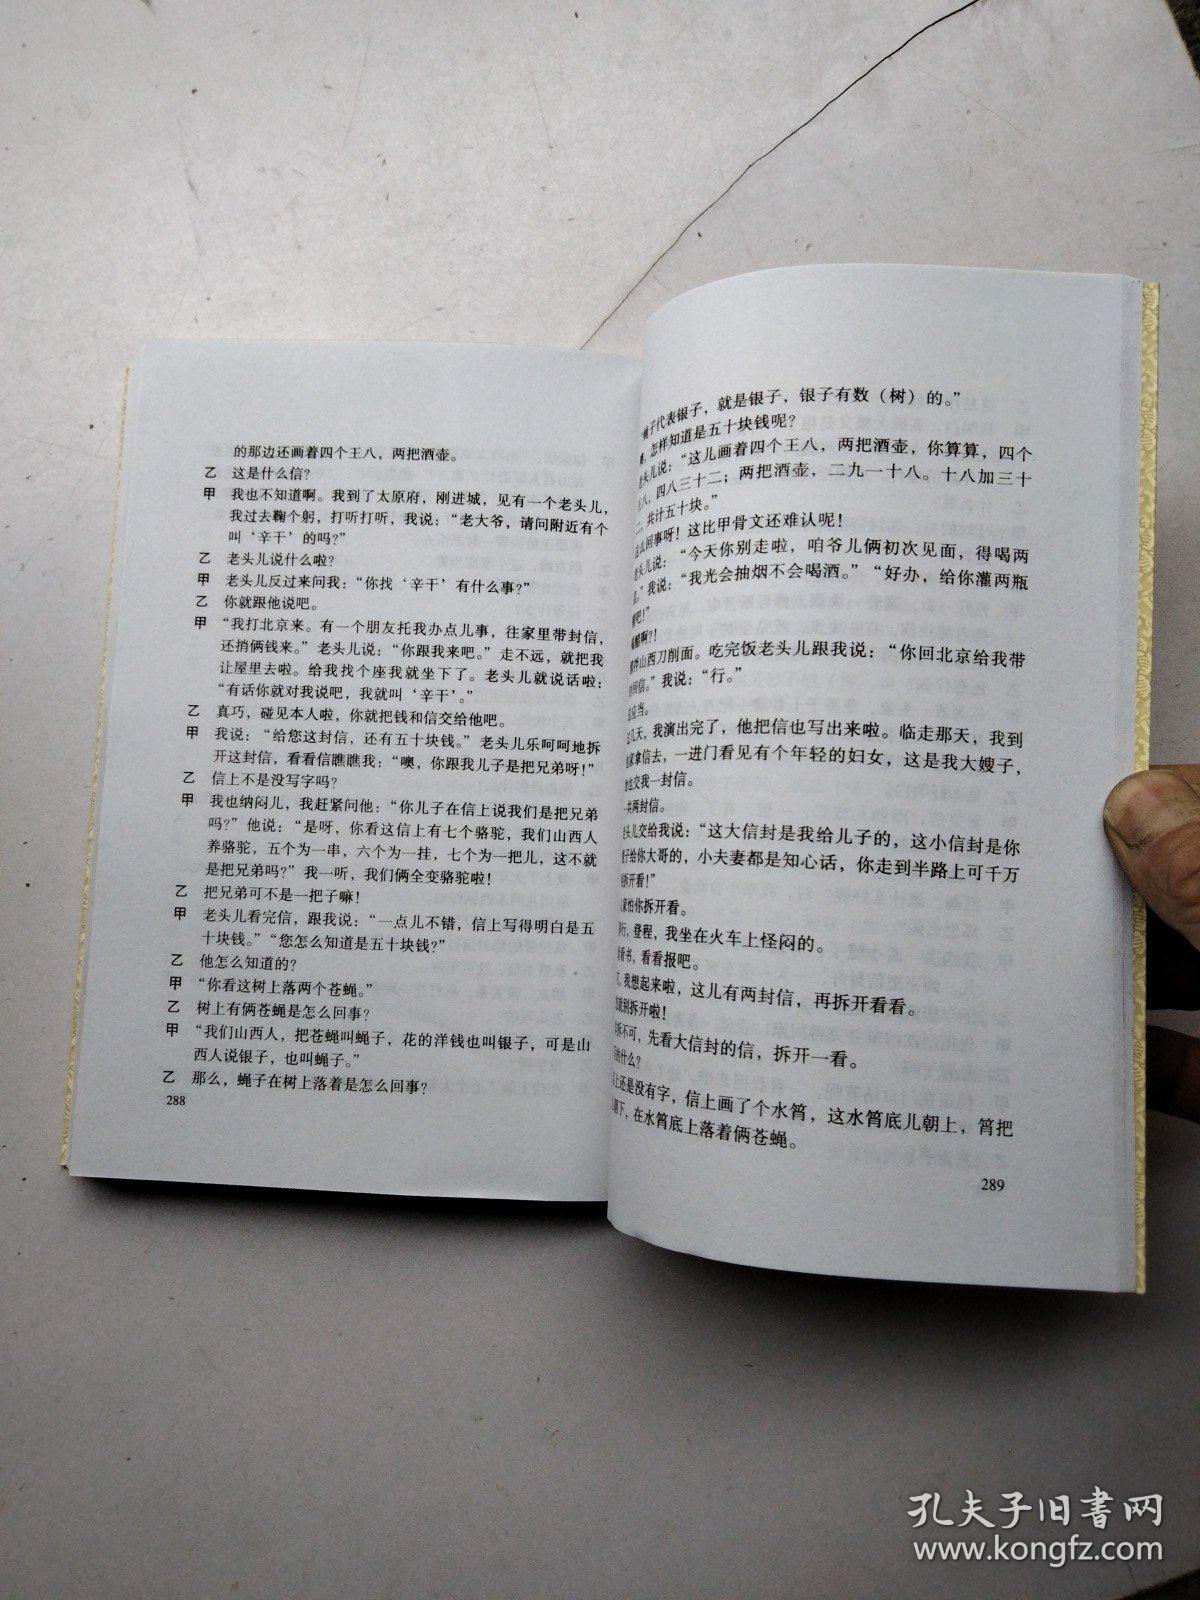 的那边还画着四个王八，两把酒壶。
乙 这是什么信？
甲 我也不知道啊。我到了太原府，刚进城，见有一个老头儿，
我过去鞠个躬，打听打听，我说：“老大爷，请问附近有个
叫‘辛干’的吗？”
乙 老头儿说什么啦？
甲 老头儿反过来问我：“你找‘辛干’有什么事？”
乙 你就跟他说吧。
甲 “我打北京来。有一个朋友托我办点儿事，往家里带封信，
还捎俩钱来。”老头儿说：“你跟我来吧。”走不远，就把我
让屋里去啦。给我找个座我就坐下了。老头儿就说话啦：
“有话你就对我说吧，我就叫‘辛干’。”
乙 真巧，碰见本人啦，你就把钱和信交给他吧。
甲 我说：“给您这封信，还有五十块钱。”老头儿乐呵呵地拆
开这封信，看看信瞧瞧我：“噢，你跟我儿子是把兄弟呀！”
乙 信上不是没写字吗？
甲 我也纳闷儿，我赶紧问他：“你儿子在信上说我们是把兄弟
吗？”他说：“是呀，你看这信上有七个骆驼，我们山西人
养骆驼，五个为一串，六个为一挂，七个为一把儿，这不就
是把兄弟吗？”我一听，我们俩全变骆驼啦！
乙 把兄弟可不是一把子嘛！
甲 老头儿看完信，跟我说：“一点儿不错，信上写得明白是五
十块钱。”“您怎么知道是五十块钱？”
乙 他怎么知道的？
甲 “你看这树上落两个苍蝇。”
乙 树上有俩苍蝇是怎么回事？
甲 “我们山西人，把苍蝇叫蝇子，花的洋钱也叫银子，可是山
西人说银子，也叫蝇子。”
乙 那么，蝇子在树上落着是怎么回事？
288
子代表银子，就是银子，银子有数（树）的。”
怎样知道是五十块钱呢？
老头儿说：“这儿画着四个王八，两把酒壶，你算算，四个
八，四八三十二；两把酒壶，二九一十八。十八加三十
二，共计五十块。”
么回事呀！这比甲骨文还难认呢！
老头儿说：“今天你别走啦，咱爷儿俩初次见面，得喝两
。”我说：“我光会抽烟不会喝酒。”“好办，给你灌两瓶
醋吧！”
醋啊？！
山西刀削面。吃完饭老头儿跟我说：“你回北京给我带
回信。”我说：“行。”
应当。
几天，我演出完了，他把信也写出来啦。临走那天，我到
家拿信去，一进门看见有个年轻的妇女，这是我大嫂子，
也交我一封信。
共两封信。
头儿交给我说：“这大信封是我给儿子的，这小信封是你
子给你大哥的，小夫妻都是知心话，你走到半路上可千万
拆开看！”
家怕你拆开看。
行，登程，我坐在火车上怪闷的。
看书，看看报吧。
，我想起来啦，这儿有两封信，再拆开看看。
就别拆开啦！
拆不可，先看大信封的信，拆开一看。
什么？
上还是没有字，信上画了个水筲，这水筲底儿朝上，筲把
下，在水筲底上落着俩苍蝇。
289
孔夫子旧书网
www.kongfz.com